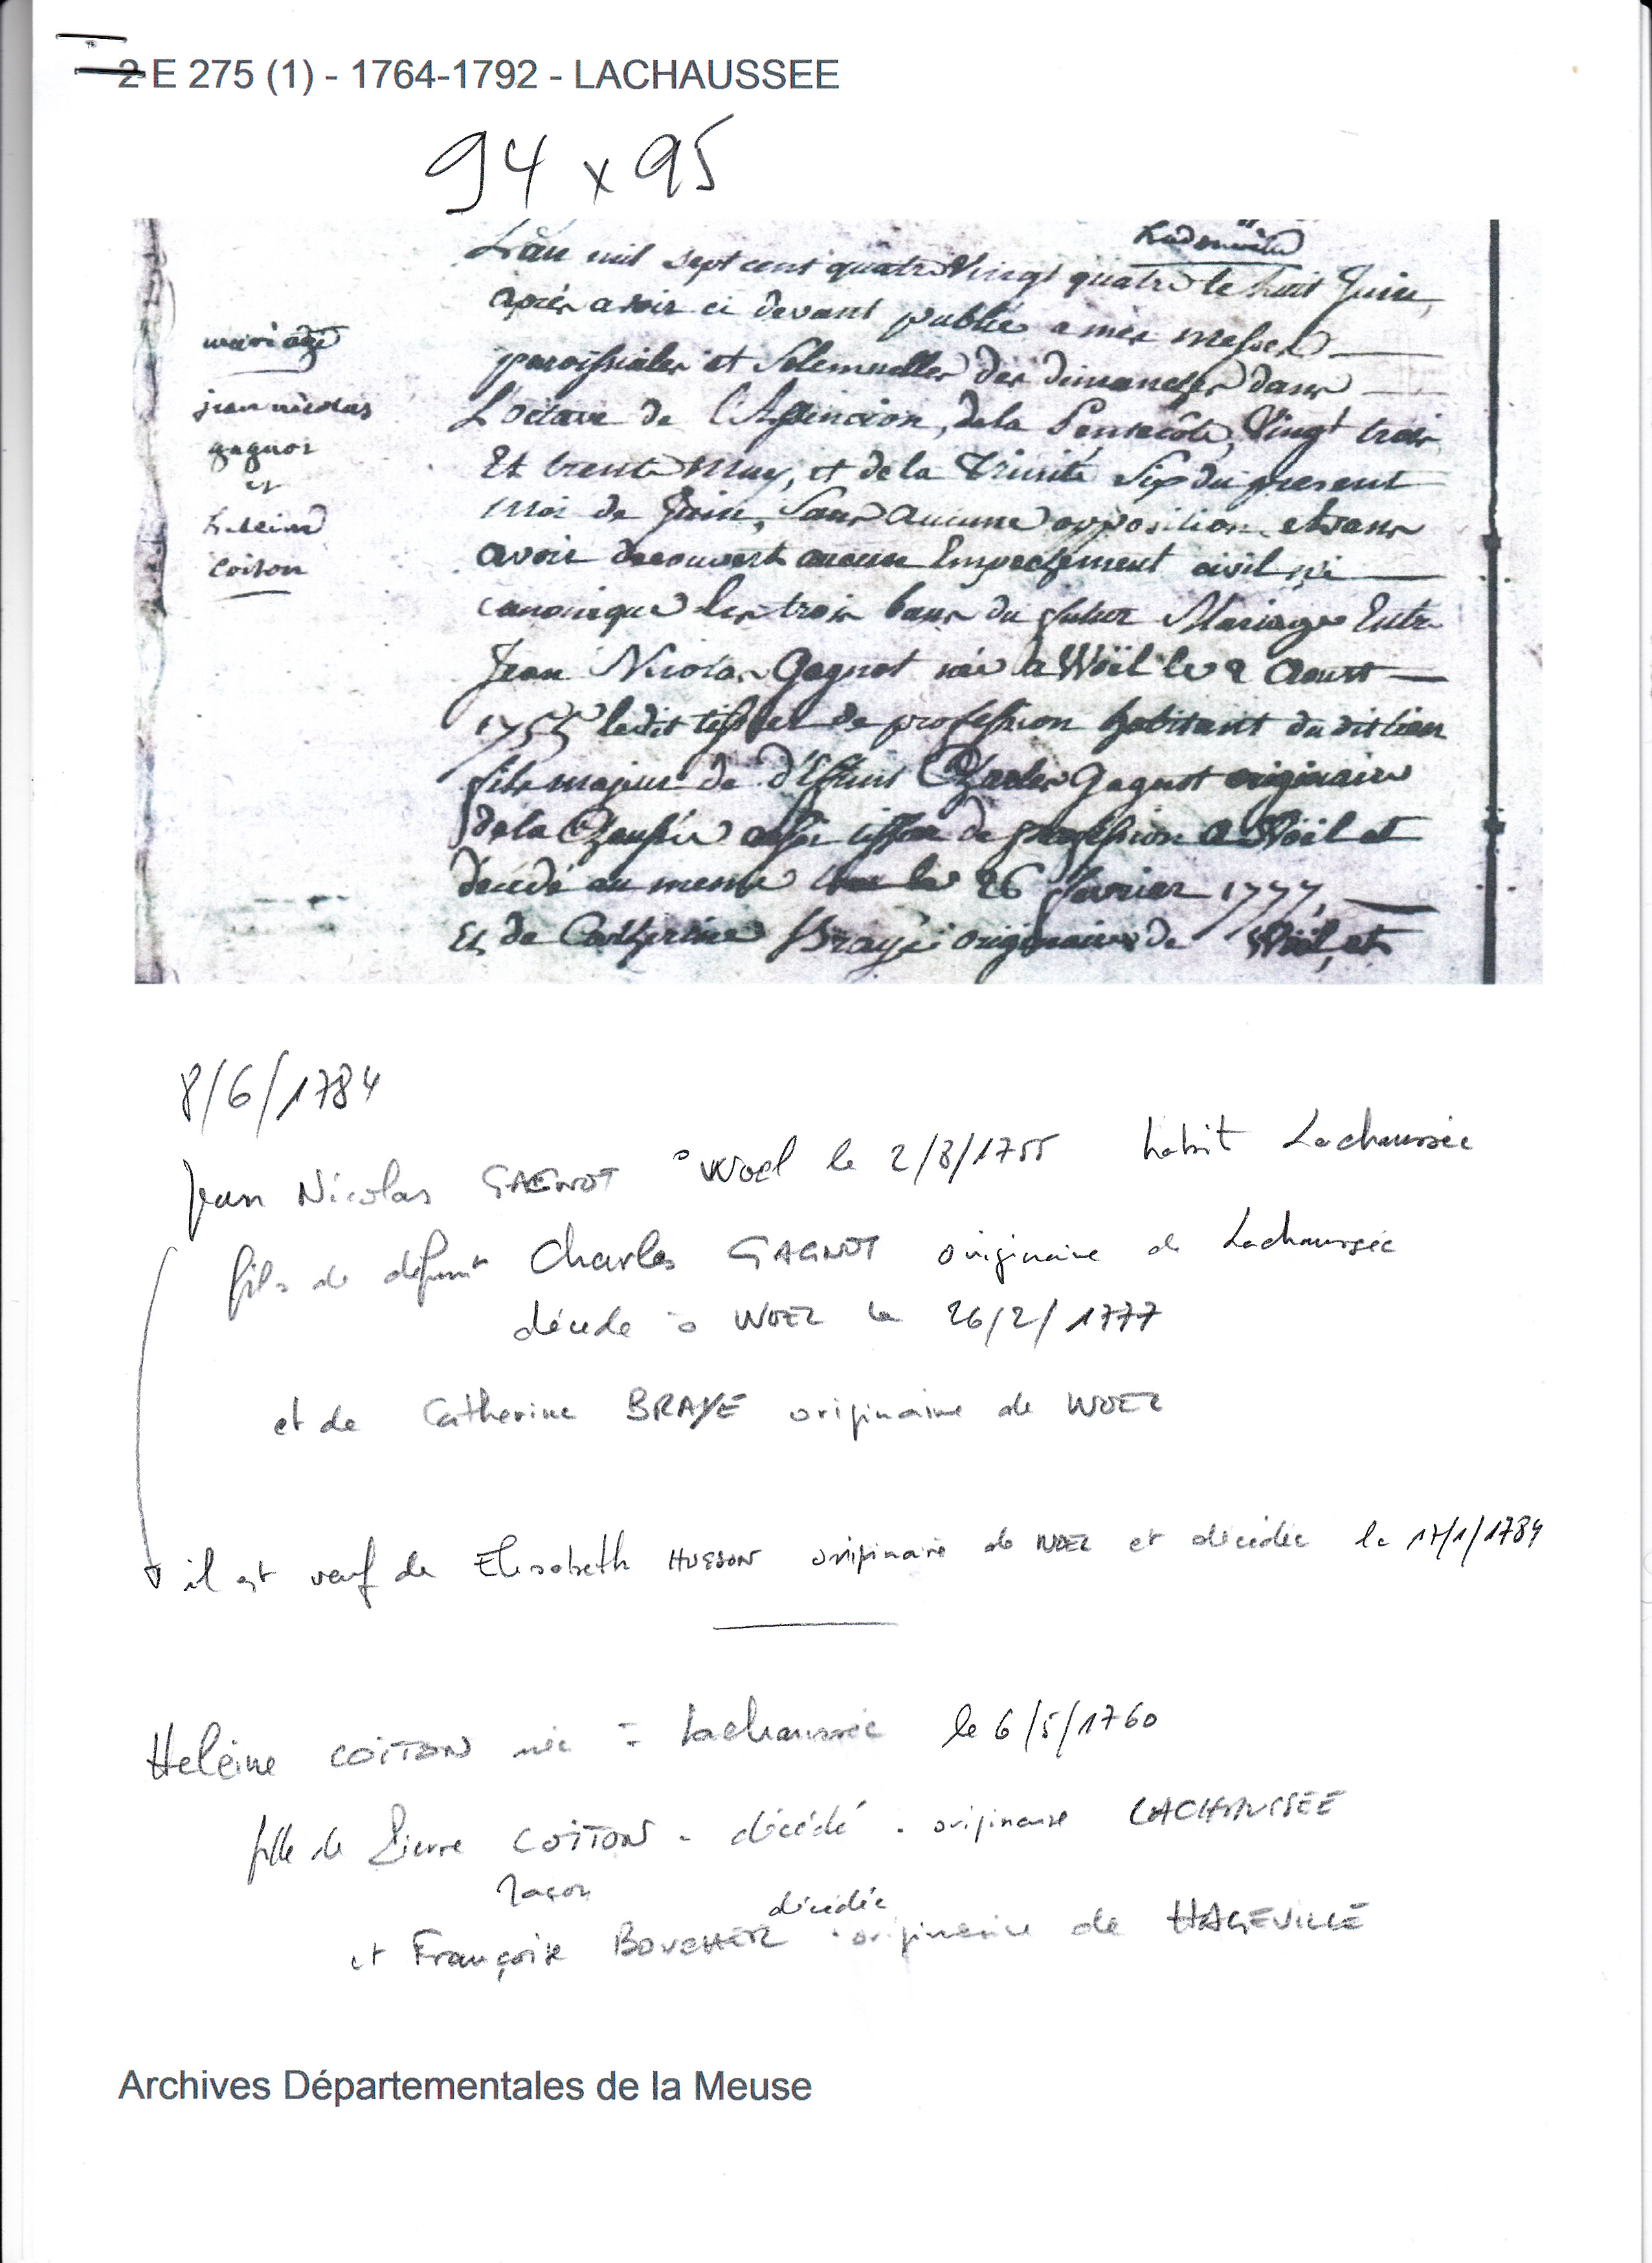 2 E 275 (1) - 1764-1792 - LACHAUSSEE
94 x 95
L'an mil sept cent quatre Vingt quatre le huit Juin,
après avoir ci devant publié a mes messes
paroissiales et Solemnelles des dimanches dans
L'octave de l'Assencion, de la Pentecôte, Vingt trois
Et trente May, et de la Trinité Six du present
mois de Juin, Sans aucune opposition, et sans
avoir decouvert aucun Empechement civil ni
canonique les trois bans du futur Mariage Entre
Jean Nicolas Gagnot né a Wöil le 2 Aoust
1755 ledit tissier de profession habitant dudit lieu
fils majeur de deffunt Charles Gagnot originaire
de la Chaussée aussi tissier de profession a Wöil et
décédé au meme lieu le 26 fevrier 1777,
Et de Catherine Brayé originaire de Wöil, et
mariage
jean nicolas
gagnot
et
heleine
coiton
8/6/1784
Jean Nicolas GAGNOT ° Woel le 2/8/1755 habit Lachaussée
fils de defunt Charles GAGNOT originaire de Lachaussée
décédé à WOEL le 26/2/1777
et de Catherine BRAYE originaire de WOEL
il est veuf de Elisabeth HUSSON originaire de WOEL et décédée le 17/1/1784
Heleine COITON née à Lachaussée le 6/5/1760
fille de Pierre COITON - décédé - originaire LACHAUSSEE
maçon
décédée
et Françoise BOUCHER originaire de HAGEVILLE
Archives Départementales de la Meuse